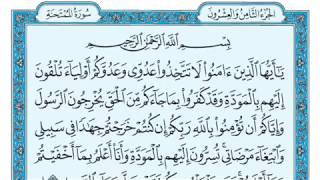 الجزء الثامن والعشرون
سورة الممتحنة
بِسْمِ اللَّهِ الرَّحْمَٰنِ الرَّحِيمِ
يَٰٓأَيُّهَا ٱلَّذِينَ ءَامَنُوا۟ لَا تَتَّخِذُوا۟ عَدُوِّى وَعَدُوَّكُمْ أَوْلِيَآءَ تُلْقُونَ
إِلَيْهِم بِٱلْمَوَدَّةِ وَقَدْ كَفَرُوا۟ بِمَا جَآءَكُم مِّنَ ٱلْحَقِّ يُخْرِجُونَ ٱلرَّسُولَ
وَإِيَّاكُمْ أَن تُؤْمِنُوا۟ بِٱللَّهِ رَبِّكُمْ إِن كُنتُمْ خَرَجْتُمْ جِهَٰدًا فِى سَبِيلِى
وَٱبْتِغَآءَ مَرْضَاتِى تُسِرُّونَ إِلَيْهِم بِٱلْمَوَدَّةِ وَأَنَا۠ أَعْلَمُ بِمَآ أَخْفَيْتُمْ